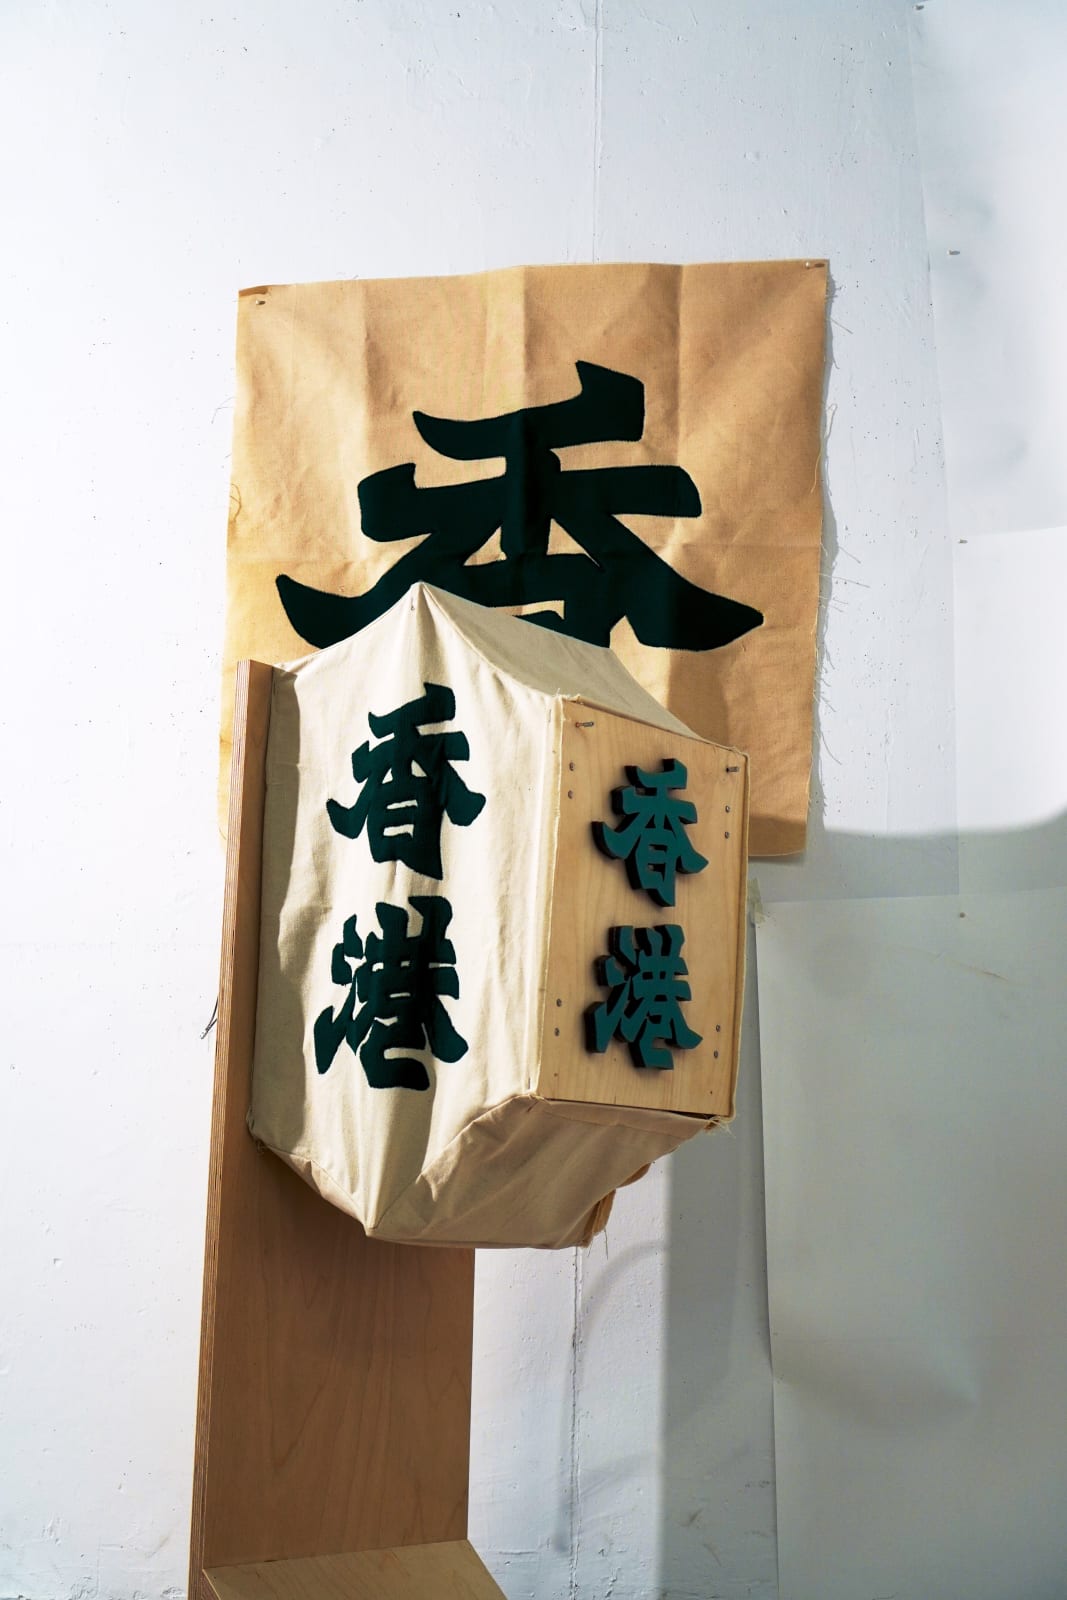 香
香港
香港